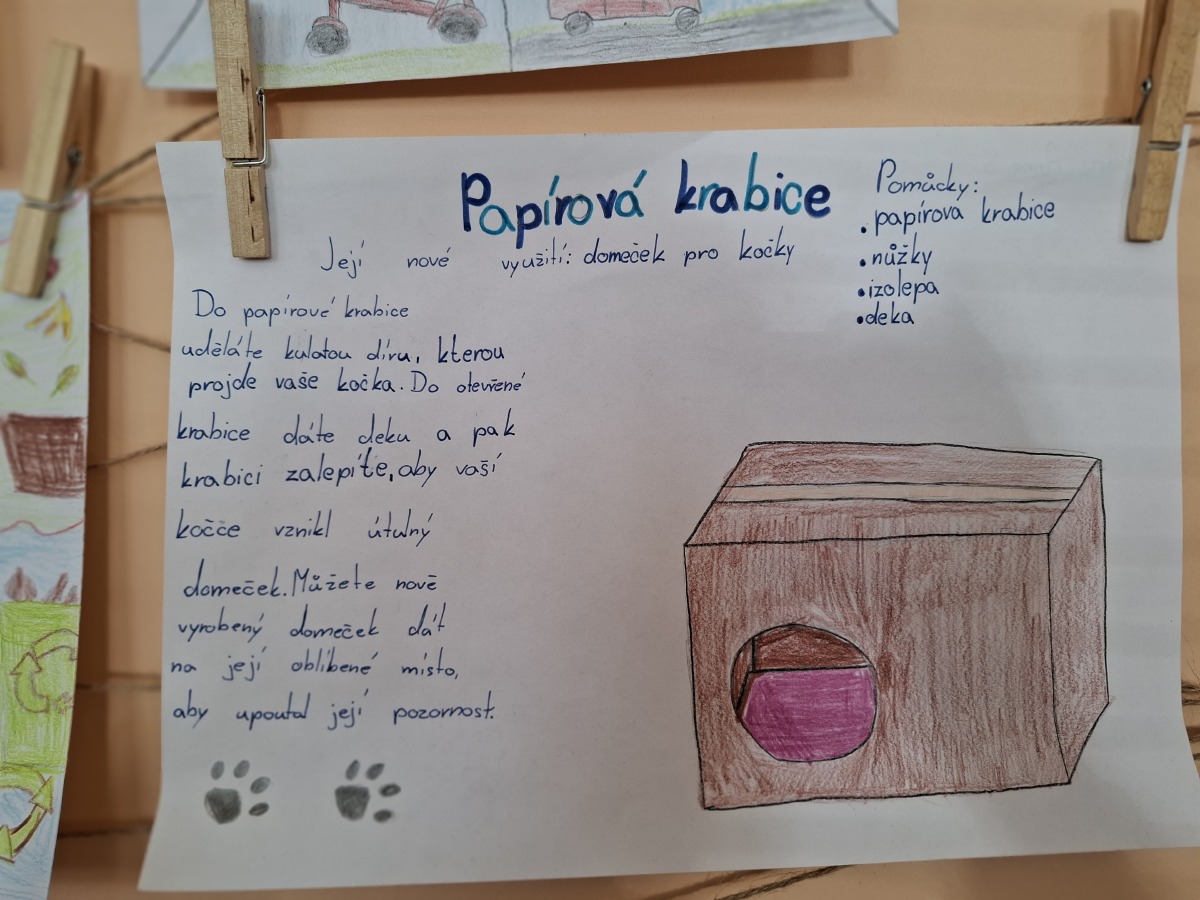 Papírová krabice
Její nové využití: domeček pro kočky
Pomůcky:
• papírova krabice
• nůžky
• izolepa
• deka
Do papírové krabice
uděláte kulatou díru, kterou
projde vaše kočka. Do otevřené
krabice dáte deku a pak
krabici zalepíte, aby vaší
kočče vznikl útulný
domeček. Můžete nově
vyrobený domeček dát
na její oblíbené místo,
aby upoutal její pozornost.